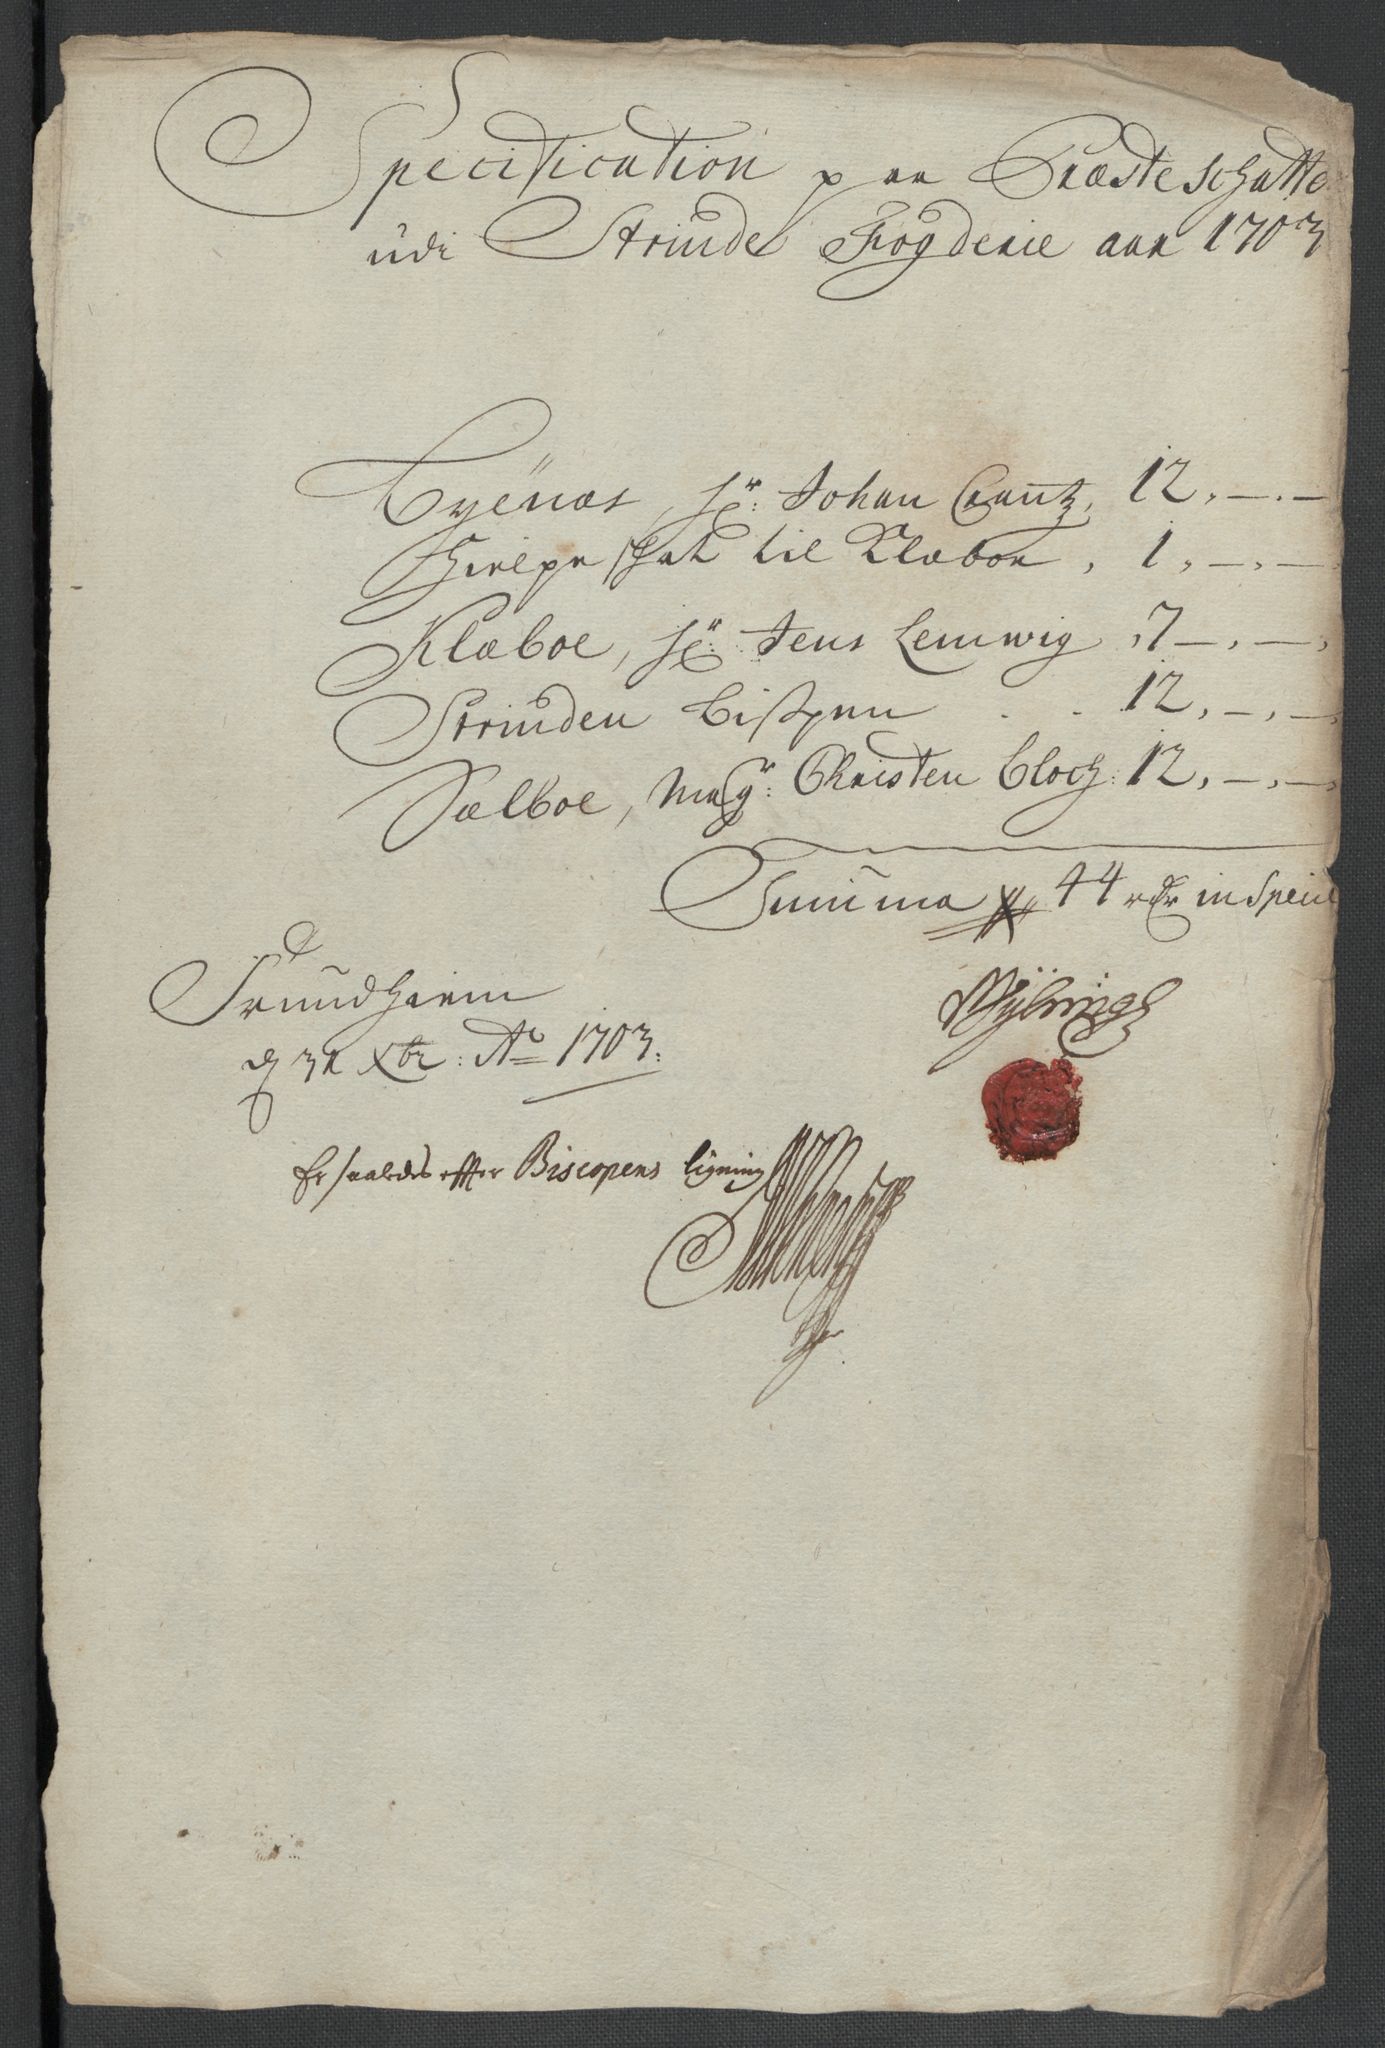 Specification paa Præsteschatte
udi Strinde Fogderie aar 1703
Byenæs, Hr: Johan Crantz, 12, —. —
Hielpe schat til Klæboe, 1, —. —
Klæboe, Hr: Jens Lemwig, 7 —. —,
Strinden Bispen . . 12, —, —,
Sælboe, Magr: Christen Bloch: 12, —, —,
Summa 44 rdr in Specie
Trundheim
d 31 Xbr: Ao 1703:
Er saaledes effter Biscopens ligning